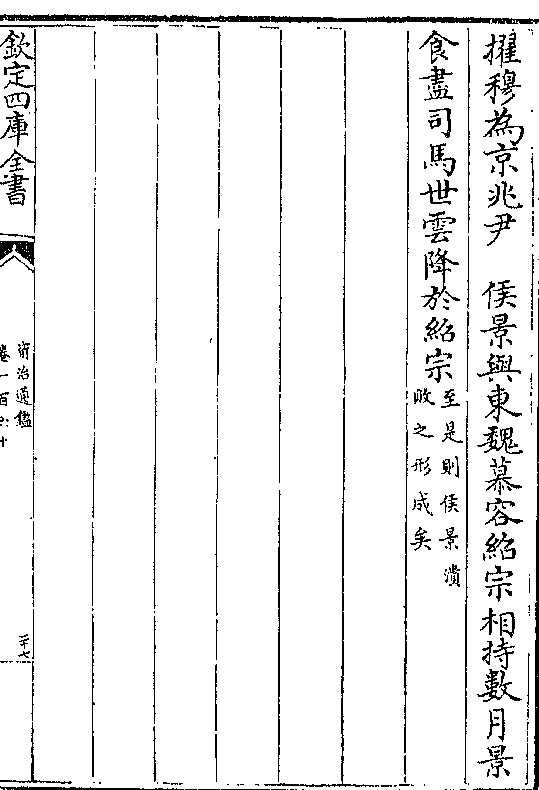 擢穆為京兆尹　侯景與東魏慕容紹宗相持數月景
食盡司馬世雲降於紹宗
至是則侯景潰
敗之形成矣
欽定四庫全書
資治通鑑
卷一百六十
二十七